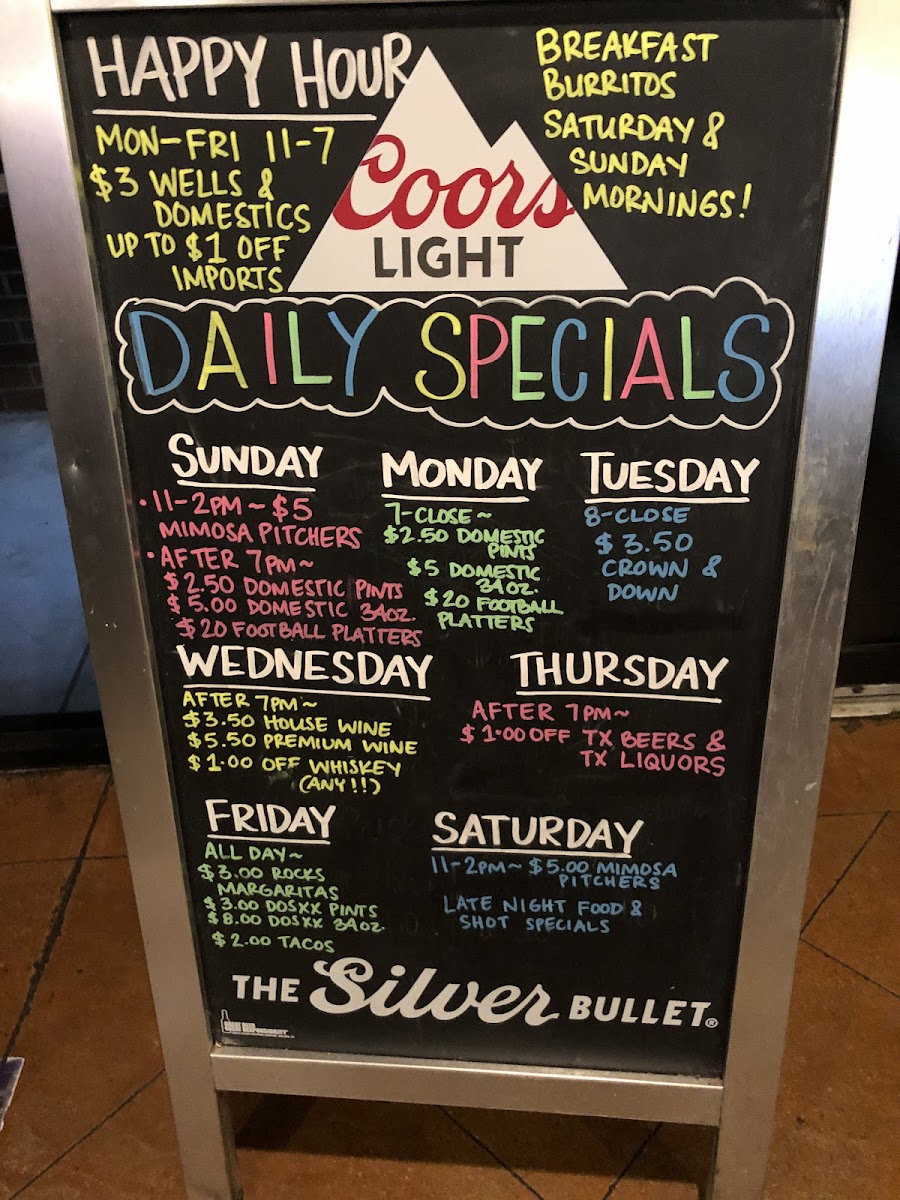 HAPPY HOUR
MON-FRI 11-7
$3 WELLS &
DOMESTICS
UP TO $1 OFF
IMPORTS
Coors
LIGHT
BREAKFAST
BURRITOS
SATURDAY &
SUNDAY
MORNINGS!
DAILY SPECIALS
SUNDAY
• 11-2PM ~ $5
MIMOSA PITCHERS
• AFTER 7PM~
$2.50 DOMESTIC PINTS
$5.00 DOMESTIC 34OZ.
$20 FOOTBALL PLATTERS
MONDAY
7-CLOSE ~
$2.50 DOMESTIC
PINTS
$5 DOMESTIC
34OZ.
$20 FOOTBALL
PLATTERS
TUESDAY
8-CLOSE
$3.50
CROWN &
DOWN
WEDNESDAY
AFTER 7PM~
$3.50 HOUSE WINE
$5.50 PREMIUM WINE
$1.00 OFF WHISKEY
(ANY!!)
THURSDAY
AFTER 7PM~
$1.00 OFF TX BEERS &
TX LIQUORS
FRIDAY
ALL DAY~
$3.00 ROCKS
MARGARITAS
$3.00 DOSXX PINTS
$8.00 DOSXX 34OZ.
$2.00 TACOS
SATURDAY
11-2PM~ $5.00 MIMOSA
PITCHERS
LATE NIGHT FOOD &
SHOT SPECIALS
THE Silver BULLET®